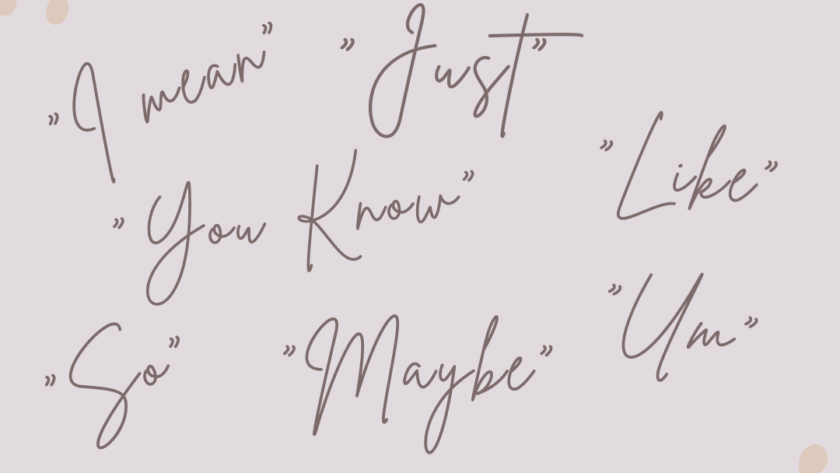 ”I mean”
”Just”
”You Know”
”Like”
”So”
”Maybe”
”Um”